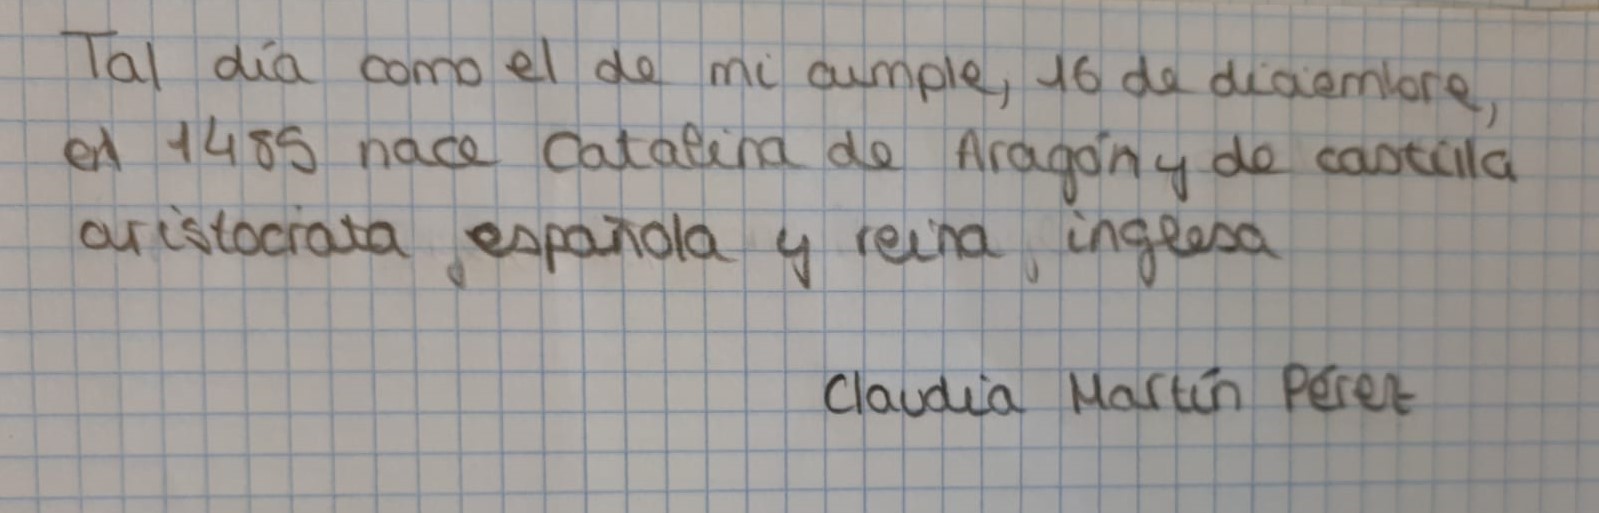 Tal día como el de mi cumple, 16 de diciembre,
en 1485 nace Catalina de Aragón y de castilla
aristocrata, española y reina, inglesa
Claudia Martín Pérez